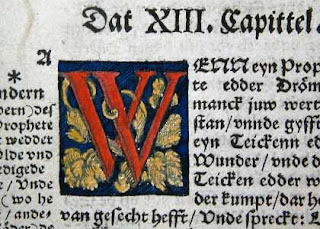 Dat XIII. Capittel.
A
*
ndern
vern) des
Prophete
t wedder
olde vnd
edigede
e / Vnde
( wo he
/ ande-
des vn-
W
ENN eyn Prop
te edder Dröm
manck juw wert
stan / vnnde gyfft
eyn Teickenn ed
Wunder / vnde d
Teicken edder w
der kumpt / dar he
van gesecht hefft / Vnde spreckt: L